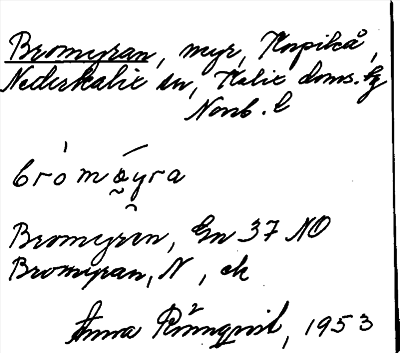 Bromyran, myr, Korpikå,
Nederkalix sn, Kalix doms. hg
Norrb. l
bròmo̰yra
Bromyren, Gn 37 NO
Bromyran, N, ek
Anna Rönnqvist, 1953